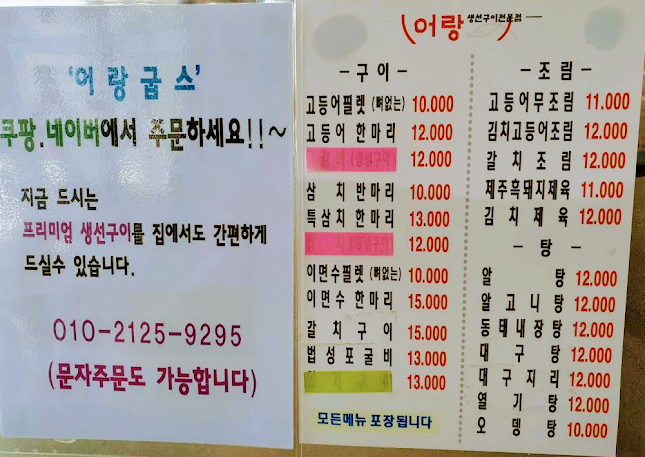 '어랑굽스'
쿠팡.네이버에서 주문하세요!!~
지금 드시는
프리미엄 생선구이를 집에서도 간편하게
드실수 있습니다.
010-2125-9295
(문자주문도 가능합니다)
(어랑) 생선구이전문점
- 구이 -
고등어필렛 (뼈없는) 10.000
고등어 한마리 12.000
12.000
삼치 반마리 10.000
특삼치 한마리 13.000
12.000
이면수필렛 (뼈없는) 10.000
이면수 한마리 15.000
갈치구이 15.000
법성포굴비 13.000
13.000
모든메뉴 포장됩니다
- 조림 -
고등어무조림 11.000
김치고등어조림 12.000
갈치조림 12.000
제주흑돼지제육 11.000
김치제육 12.000
- 탕 -
알탕 12.000
알고니탕 12.000
동태내장탕 12.000
대구탕 12.000
대구지리 12.000
열기탕 12.000
오뎅탕 10.000